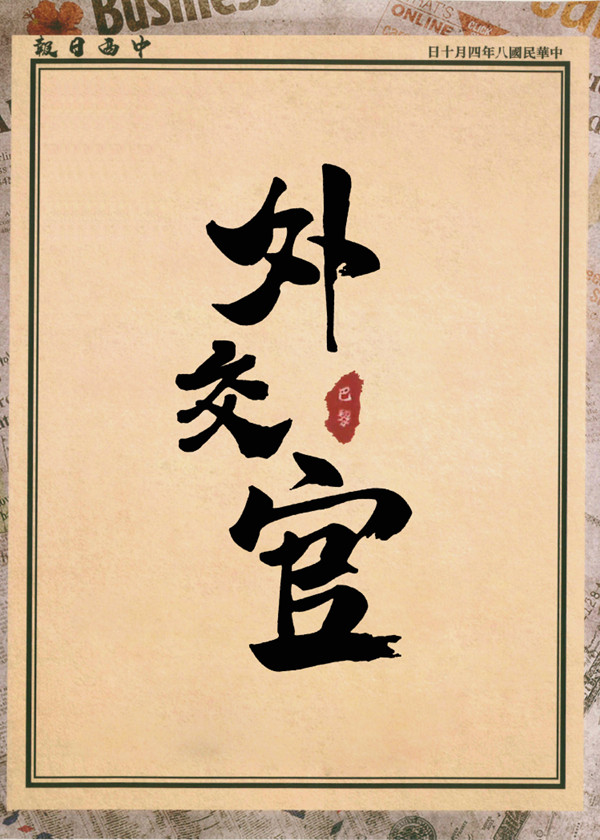 Business
ONLINE
中華民國八年四月十日
中西日報
外交官
巴黎